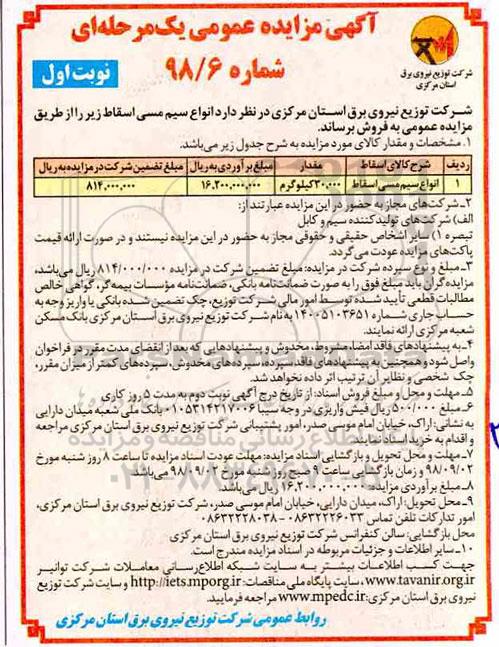 آگهی مزایده عمومی یک مرحله‌ای
شماره ۹۸/۶
نوبت اول
شرکت توزیع نیروی برق
استان مرکزی
شرکت توزیع نیروی برق استان مرکزی در نظر دارد انواع سیم مسی اسقاط زیر را از طریق
مزایده عمومی به فروش برساند.
۱ـ مشخصات و مقدار کالای مورد مزایده به شرح جدول زیر می‌باشد.
ردیف شرح کالای اسقاط مقدار مبلغ برآوردی به ریال مبلغ تضمین شرکت در مزایده به ریال
۱ انواع سیم مسی اسقاط ۳۰,۰۰۰ کیلوگرم ۱۶,۲۰۰,۰۰۰,۰۰۰ ۸۱۴,۰۰۰,۰۰۰
۲ـ شرکت‌های مجاز به حضور در این مزایده عبارتند از:
الف) شرکت‌های تولیدکننده سیم و کابل
تبصره ۱) سایر اشخاص حقیقی و حقوقی مجاز به حضور در این مزایده نیستند و در صورت ارائه قیمت
پاکت‌های مزایده عودت می‌گردد.
۳ـ مبلغ و نوع سپرده شرکت در مزایده: مبلغ تضمین شرکت در مزایده ۸۱۴/۰۰۰/۰۰۰ ریال می‌باشد،
مزایده گران باید مبلغ فوق را به صورت ضمانت‌نامه بانکی، ضمانت‌نامه مؤسسات بیمه‌گر، گواهی خالص
مطالبات قطعی تأیید شده توسط امور مالی شرکت توزیع، چک تضمین شده بانکی یا واریز وجه به
حساب جاری شماره ۱۴۰۰۵۱۰۳۶۵۱ به نام شرکت توزیع نیروی برق استان مرکزی بانک مسکن
شعبه مرکزی ارائه نمایند.
۴ـ به پیشنهادهای فاقد امضا، مشروط، مخدوش و پیشنهادهایی که بعد از انقضای مدت مقرر در فراخوان
واصل شود و همچنین به پیشنهادهای فاقد سپرده، سپرده‌های مخدوش، سپرده‌های کمتر از میزان مقرر،
چک شخصی و نظایر آن ترتیب اثر داده نخواهد شد.
۵ـ مهلت و محل و مبلغ فروش اسناد: از تاریخ درج آگهی نوبت دوم به مدت ۵ روز کاری
۶ـ مبلغ ۵۰۰/۰۰۰ ریال فیش واریزی در وجه سیبا ۰۱۰۵۳۱۴۲۱۷۰۰۶ بانک ملی شعبه میدان دارایی
به نشانی: اراک، خیابان امام موسی صدر، امور پشتیبانی شرکت توزیع نیروی برق استان مرکزی مراجعه
و اقدام به خرید اسناد نمایند.
۷ـ مهلت و محل تحویل و بازگشایی اسناد مزایده: مهلت عودت اسناد مزایده تا ساعت ۸ روز شنبه مورخ
۹۸/۰۹/۰۲ و زمان بازگشایی ساعت ۹ صبح روز شنبه مورخ ۹۸/۰۹/۰۲ می‌باشد.
۸ـ مبلغ برآوردی مزایده: ۱۶,۲۰۰,۰۰۰,۰۰۰ ریال می‌باشد.
۹ـ محل تحویل: اراک، میدان دارایی، خیابان امام موسی صدر، شرکت توزیع نیروی برق استان مرکزی،
امور تدارکات تلفن تماس ۰۸۶۳۲۲۲۶۰۳۳ - ۰۸۶۳۲۲۲۸۰۳۸
محل بازگشایی: سالن کنفرانس شرکت توزیع نیروی برق استان مرکزی
۱۰ـ سایر اطلاعات و جزئیات مربوطه در اسناد مزایده مندرج است.
جهت کسب اطلاعات بیشتر به سایت شبکه اطلاع‌رسانی معاملات شرکت توانیر
www.tavanir.org.ir، سایت پایگاه ملی مناقصات: http://iets.mporg.ir و سایت شرکت توزیع
نیروی برق استان مرکزی: www.mpedc.ir مراجعه فرمایید.
روابط عمومی شرکت توزیع نیروی برق استان مرکزی